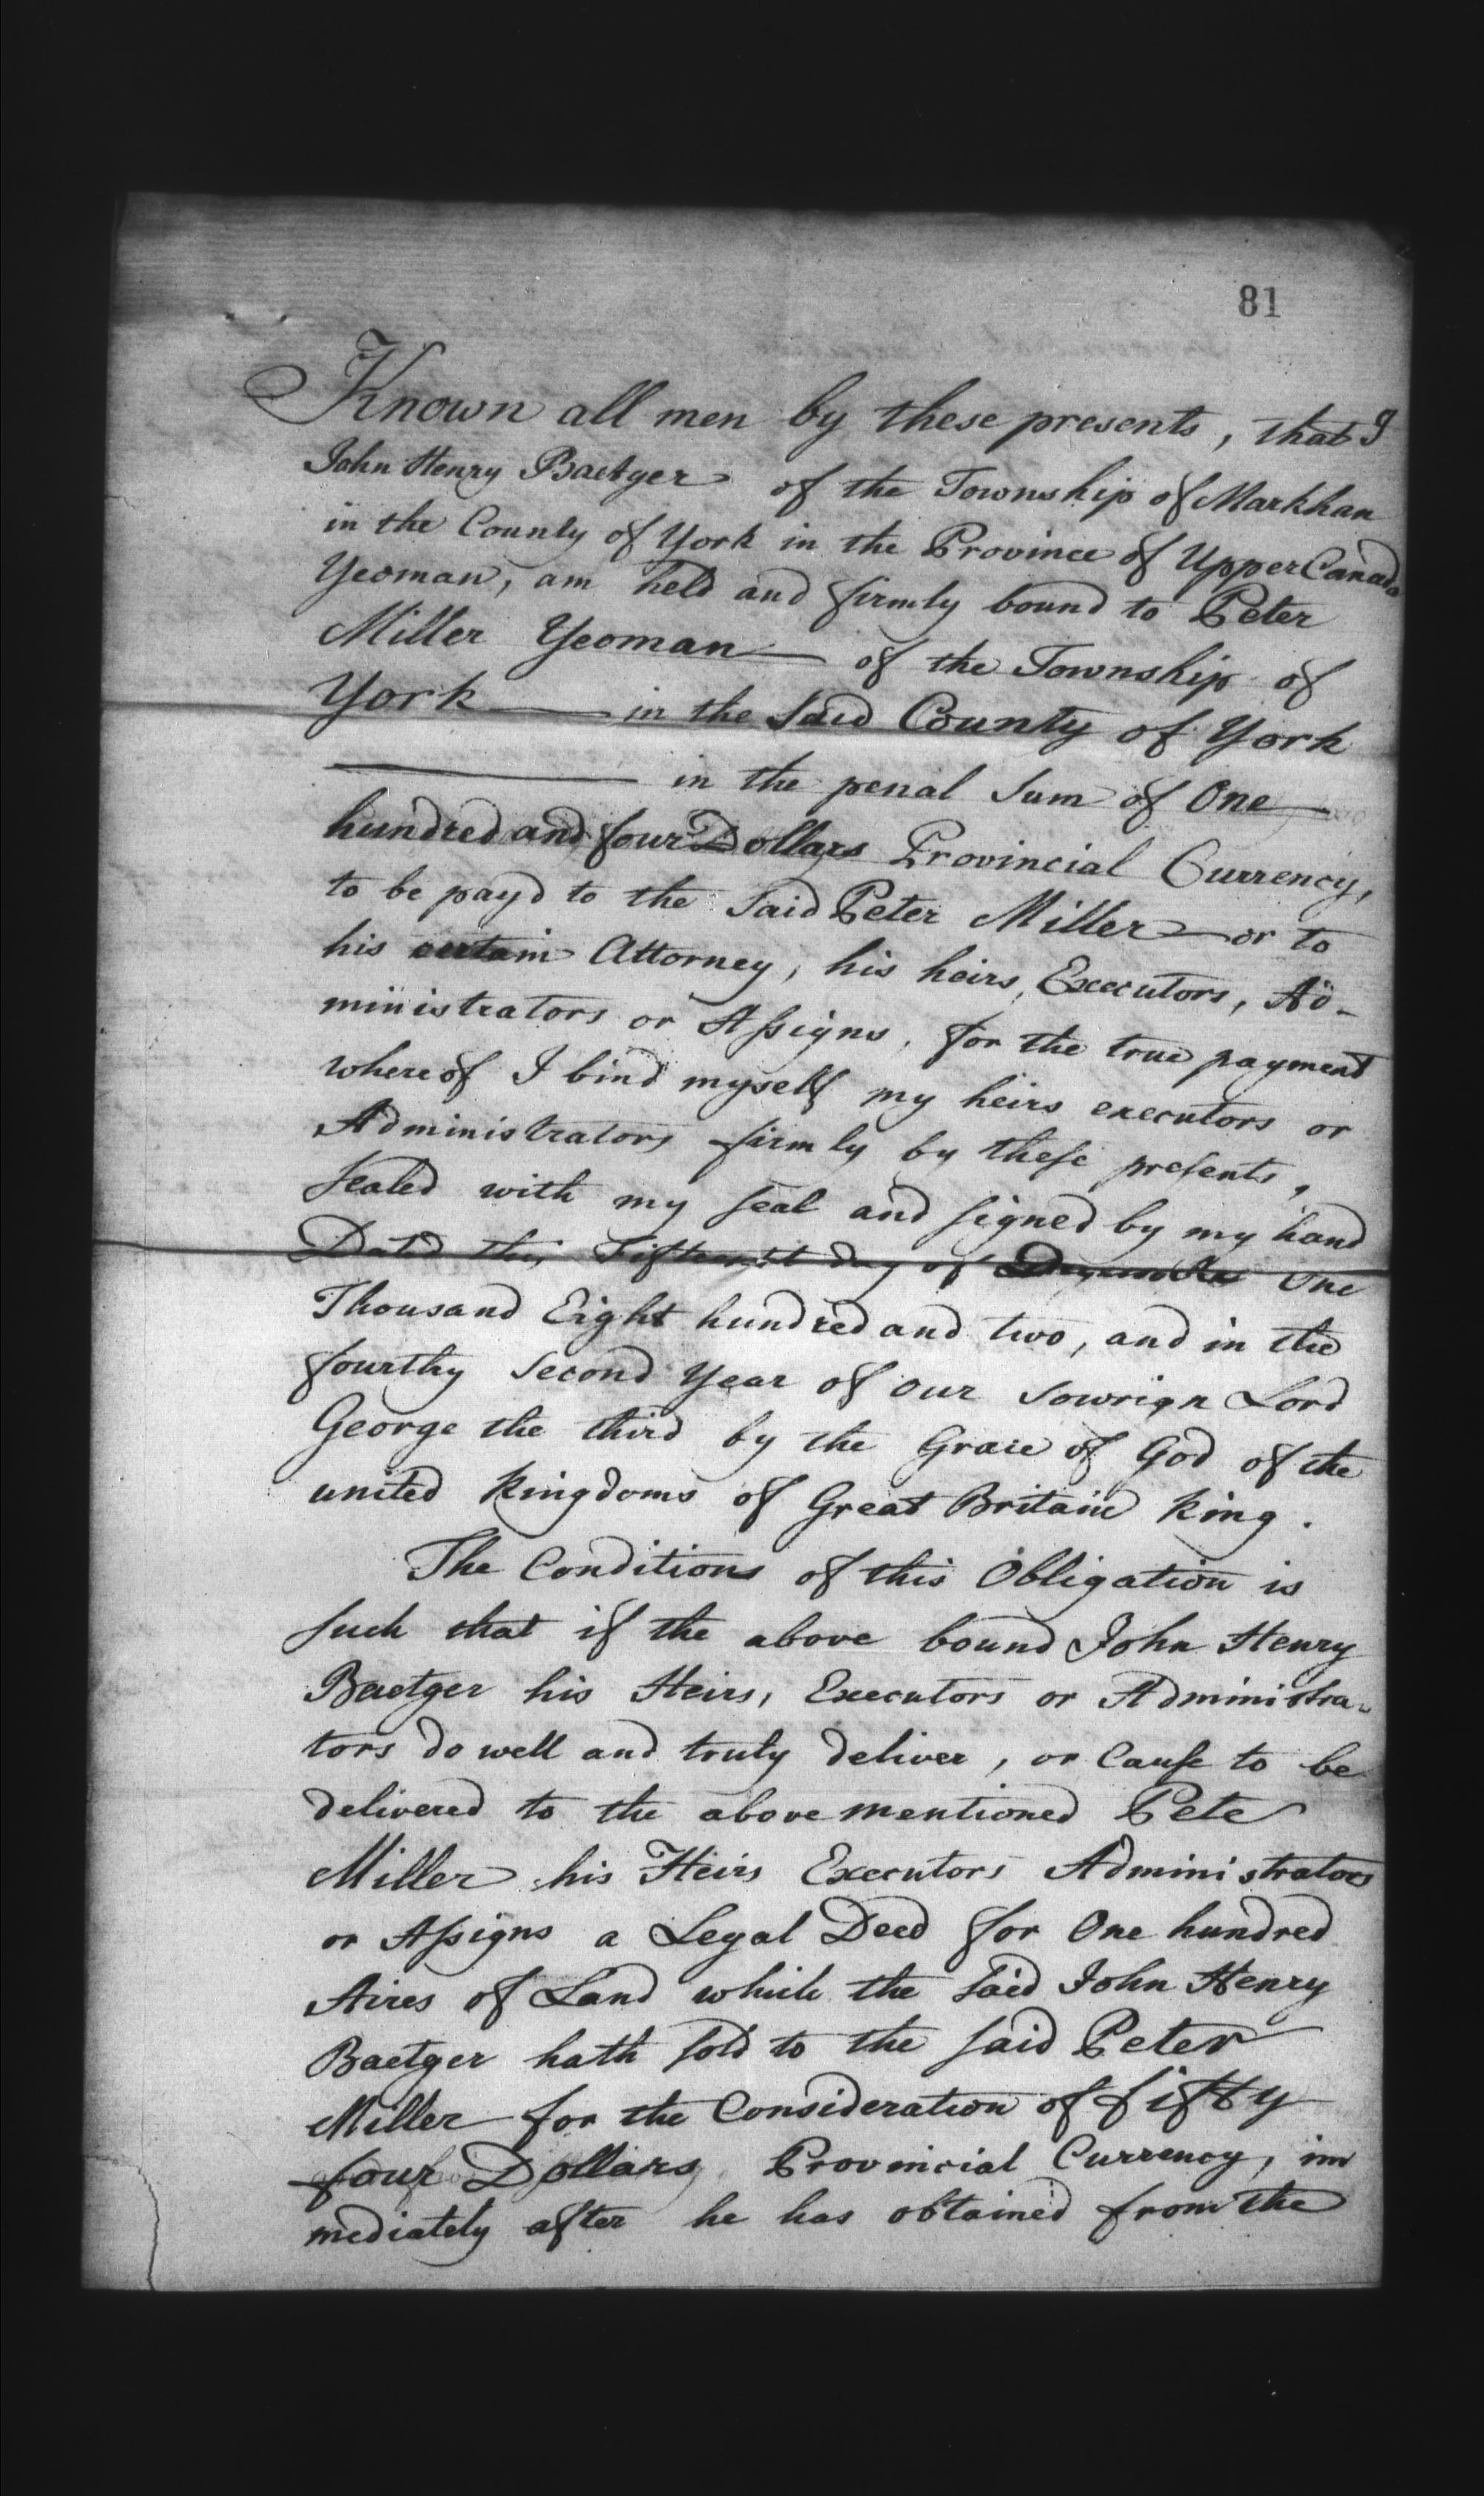 81
Known all men by these presents, that I
John Henry Baetger of the Township of Markham
in the County of York in the Province of Upper Canada
Yeoman, am held and firmly bound to Peter
Miller Yeoman of the Township of
York in the Said County of York
in the penal Sum of One
hundred and four Dollars Provincial Currency,
to be payd to the Said Peter Miller or to
his certain Attorney, his heirs, Executors, Ad-
ministrators or Assigns, for the true payment
whereof I bind myself my heirs executors or
Administrators firmly by these presents,
Sealed with my Seal and signed by my hand
Datd this day of One
Thousand Eight hundred and two, and in the
fourthy Second Year of our Sowrign Lord
George the third by the Grace of God of the
united Kingdoms of Great Britain King.
The Conditions of this Obligation is
Such that if the above bound John Henry
Baetger his Heirs, Executors or Administra-
tors do well and truly deliver, or Cause to be
delivered to the above mentioned Peter
Miller his Heirs Executors Administrators
or Assigns a Legal Deed for One hundred
Acres of Land which the Said John Henry
Baetger hath Sold to the Said Peter
Miller for the Consideration of fifty
four Dollars Provincial Currency, im
mediately after he has obtained from the